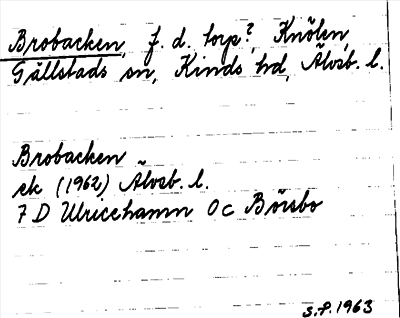 Brobacken, f. d. torp?, Knölen,
Gällstads sn, Kinds hd, Älvsb. l.
Brobacken
ek (1962) Älvsb. l.
7 D Ulricehamn 0c Börsbo
S.P. 1963